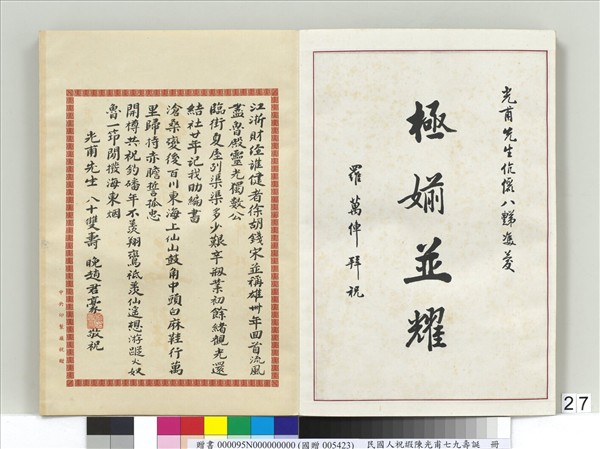 光甫先生伉儷八秩雙慶
極婺並耀
羅萬俥拜祝
江浙財經誰健者徐胡錢宋並稱雄卅年回首流風
盡魯殿靈光獨數公
臨街夏屋列渠渠多少艱辛締業初餘緒觀光還
結社廿年記我助編書
滄桑變後百川東海上仙山鼓角中頭白麻鞋行萬
里歸時赤膽誓孤忠
開樽共祝釣璜年不羨翔鸞祇羨仙遙想游蹤火奴
魯一筇閒撥海東烟
光甫先生八十雙壽 晚趙君豪敬祝
中央印製廠桃明
27
贈書 000095N000000000 (國贈 005423) 民國人祝嘏陳光甫七九壽誕 冊